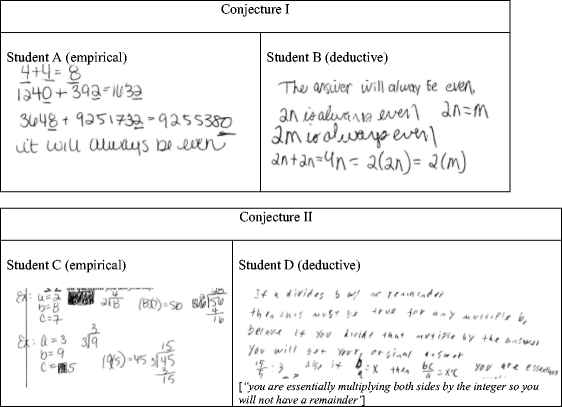 Conjecture I
Student A (empirical)
4+4=8
1240 + 392=1632
3648 + 9251732=9255380
it will always be even
Student B (deductive)
The answer will alway be even,
2n is always even 2n=m
2m is always even
2n+2n=4n= 2(2n)= 2(m)
Conjecture II
Student C (empirical)
Ex: a=2
b=8
c=7
Ex: a=3
b=9
c=5
Student D (deductive)
If a divides b w/ no remainder
then this must be true for any multiple b,
becaue if you divide that mutiple by the answer
You will get your original answer
also if b/a=x then bc/a=xc you are
["you are essentially multiplying both sides by the integer so you
will not have a remainder"]